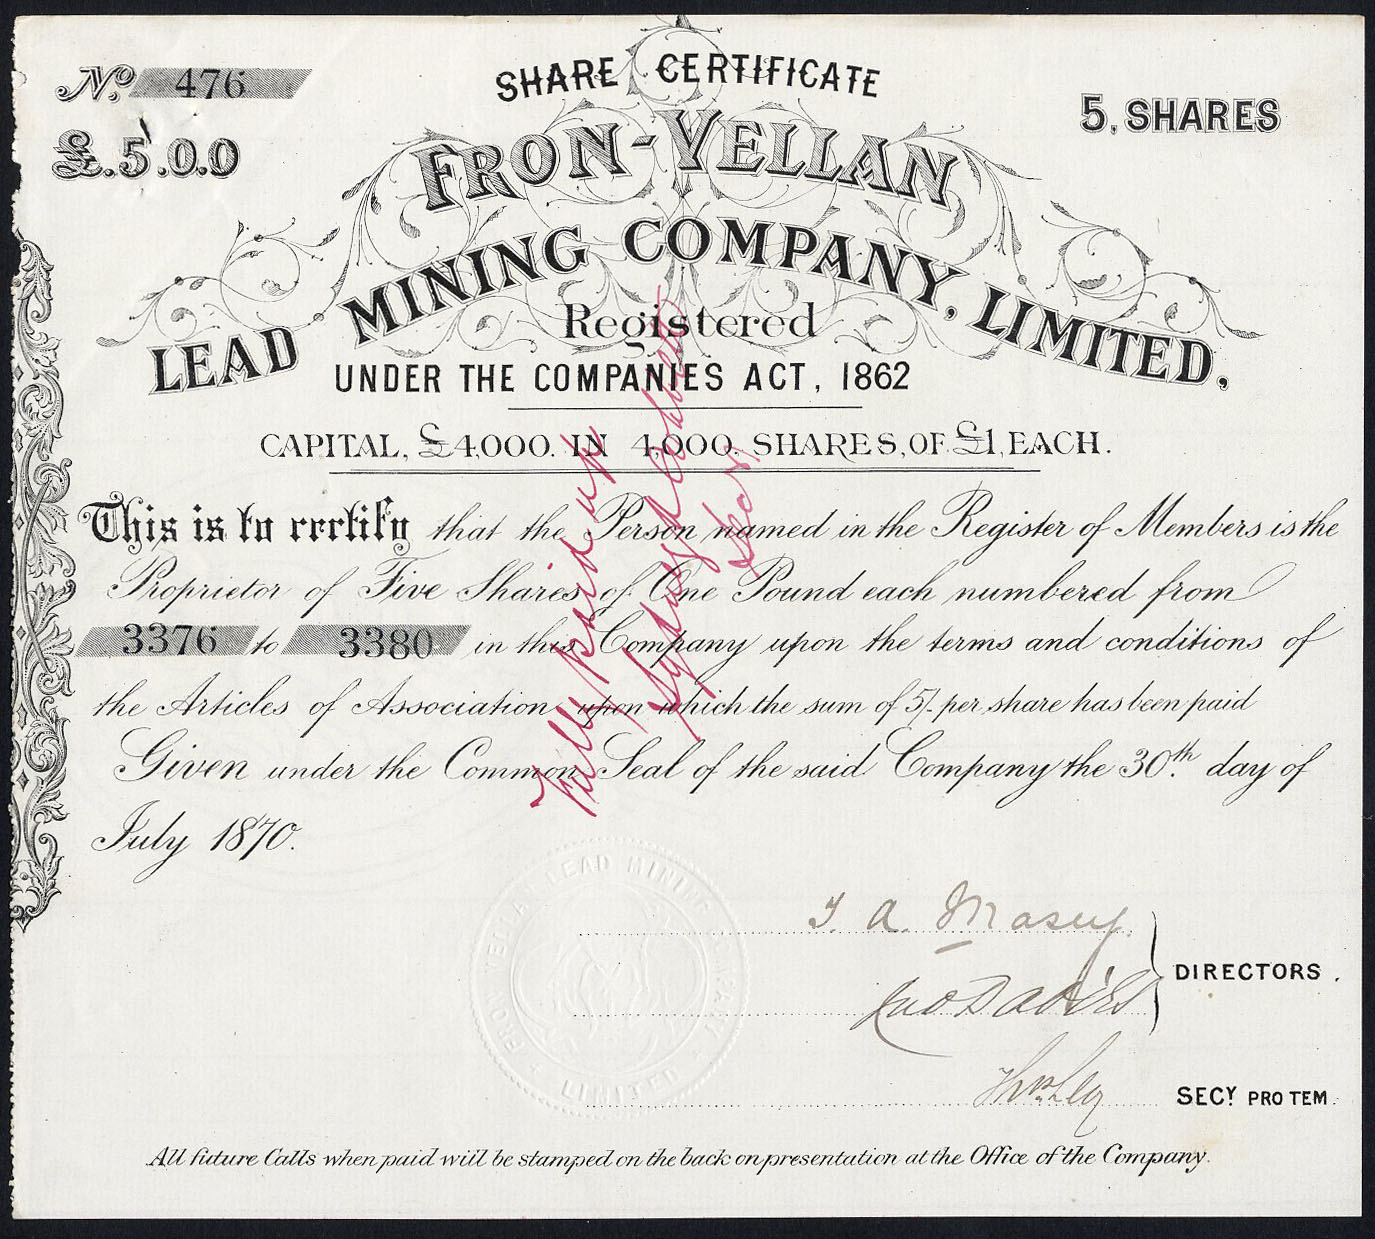 No. 476
£.5.0.0
SHARE CERTIFICATE
5, SHARES
FRON-VELLAN
LEAD MINING COMPANY, LIMITED,
Registered
UNDER THE COMPANIES ACT, 1862
CAPITAL, £4,000. IN 4,000. SHARES, OF £1, EACH.
This is to certify that the Person named in the Register of Members is the
Proprietor of Five Shares of One Pound each numbered from
3376 to 3380 in this Company upon the terms and conditions of
the Articles of Association upon which the sum of 5/- per share has been paid
Given under the Common Seal of the said Company the 30th. day of
July 1870.
Fully paid up
Secy.
FRON VELLAN LEAD MINING COMPANY
LIMITED
T. A. Masey
Jno Davies
DIRECTORS.
Thos
SECY PRO TEM.
All future Calls when paid will be stamped on the back on presentation at the Office of the Company.